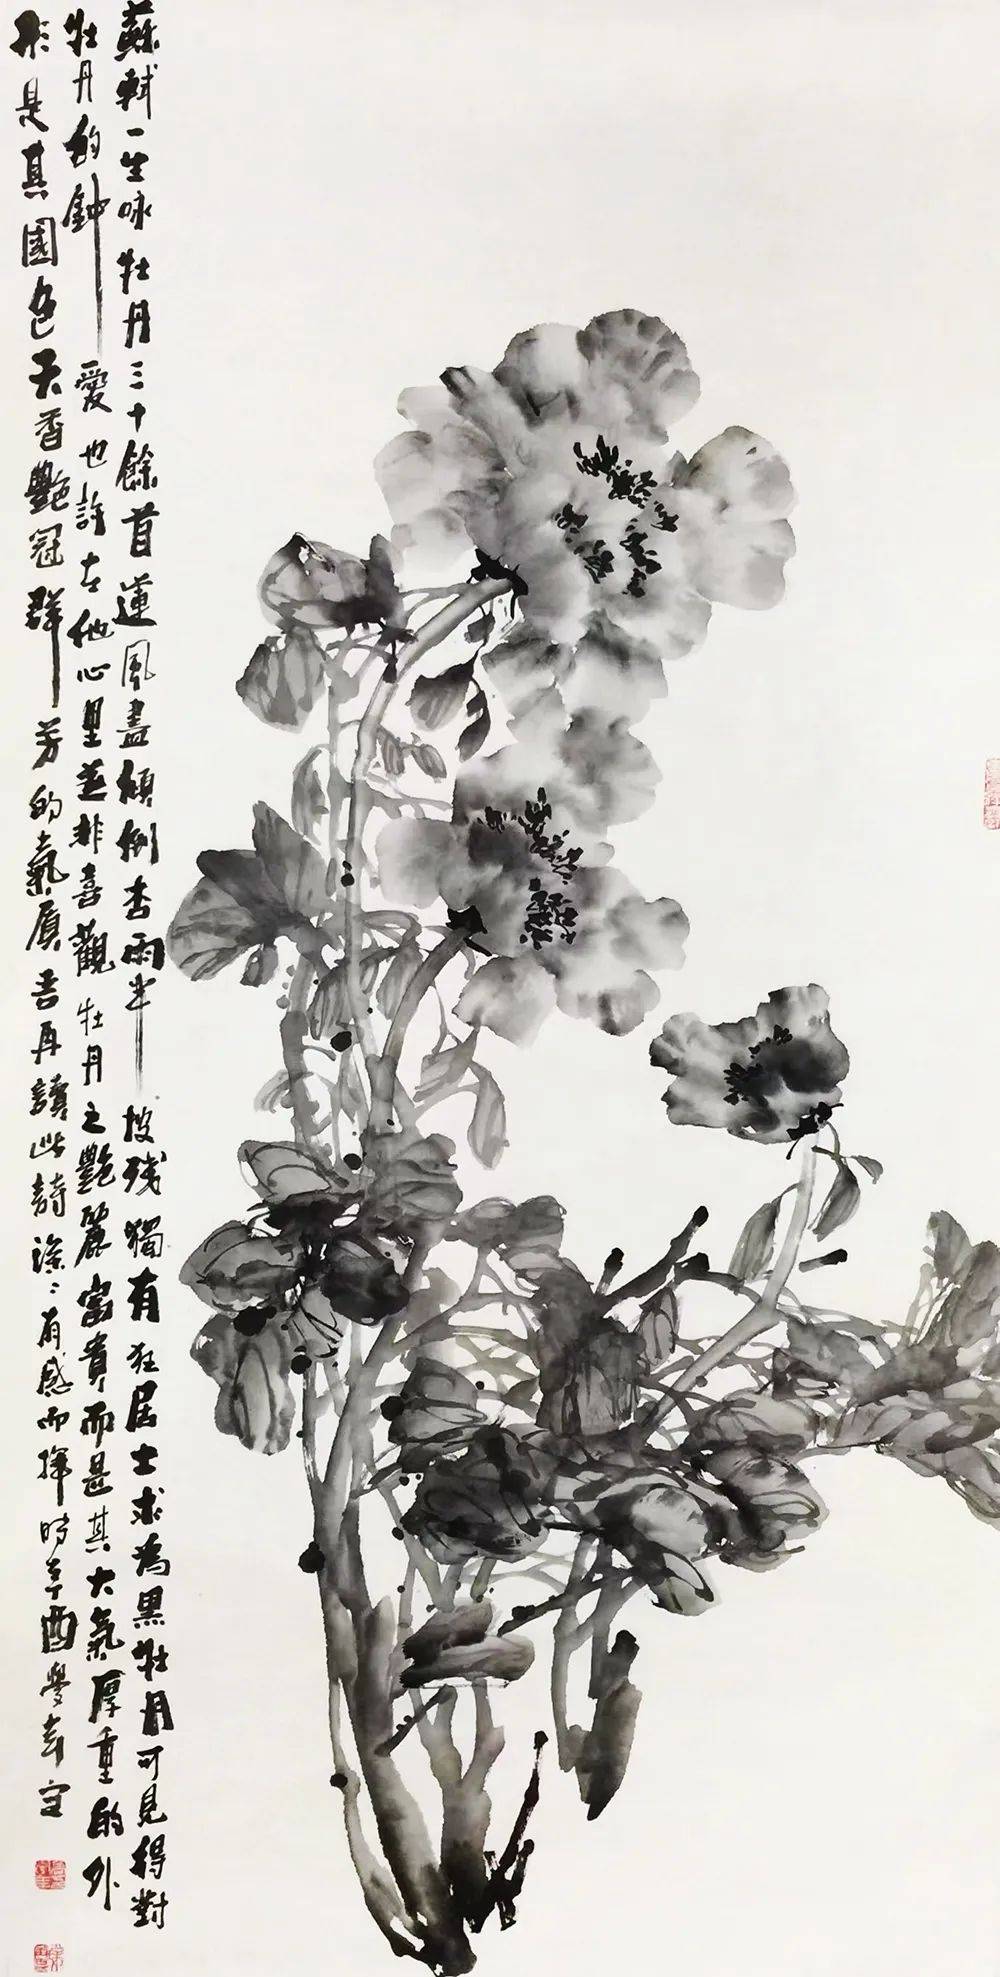 蘇軾一生咏牡丹三十餘首蓮風盡傾倒杏雨半披殘獨有狂居士求為黑牡丹可見得對
牡丹的鍾愛也許在他心里並非喜觀牡丹之艷麗富貴而是其大氣厚重的外
形是其國色天香艷冠群芳的氣質吾再讀此詩深〻有感而揮時辛酉